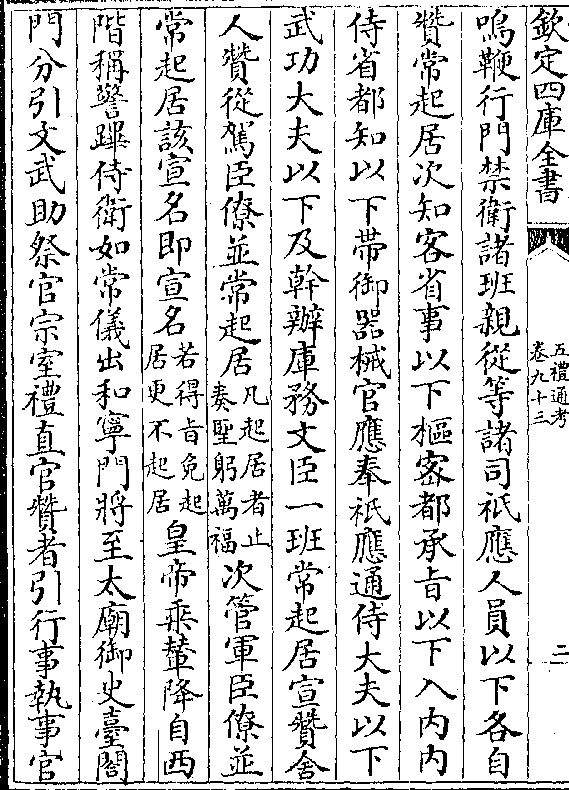 欽定四庫全書
五禮通考
卷九十三
二
鳴鞭行門禁衛諸班親從等諸司祇應人員以下各自
贊常起居次知客省事以下樞密都承旨以下入内内
侍省都知以下帶御器械官應奉祇應通侍大夫以下
武功大夫以下及幹辦庫務文臣一班常起居宣贊舍
人贊從駕臣僚並常起居凡起居者止奏聖躬萬福次管軍臣僚並
常起居該宣名即宣名若得旨免起居更不起居皇帝乘輦降自西
階稱警蹕侍衛如常儀出和寧門將至太廟御史臺閤
門分引文武助祭官宗室禮直官贊者引行事執事官